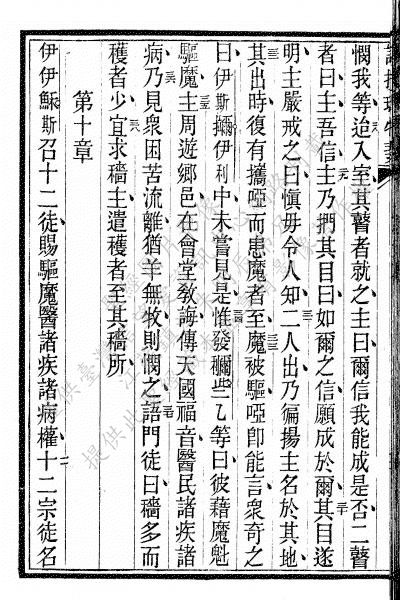 憫我等迨入室其瞽者就之主曰爾信我能成是否二瞽
者曰主吾信主乃捫其目曰如爾之信願成於爾其目遂
明主嚴戒之曰愼毋令人知二人出乃徧揚主名於其地
其出時復有攜啞而患魔者至魔被驅啞卽能言衆奇之
曰伊斯伊利中未嘗見是惟發穪些乙等曰彼藉魔魁
驅魔主周遊鄉邑在會堂教誨傳天國福音醫民諸疾諸
病乃見衆困苦流離猶羊無牧則憫之語門徒曰穡多而
穫者少宜求穡主遣穫者至其穡所
第十章
伊伊穌斯召十二徒賜驅魔醫諸疾諸病權十二宗徒名